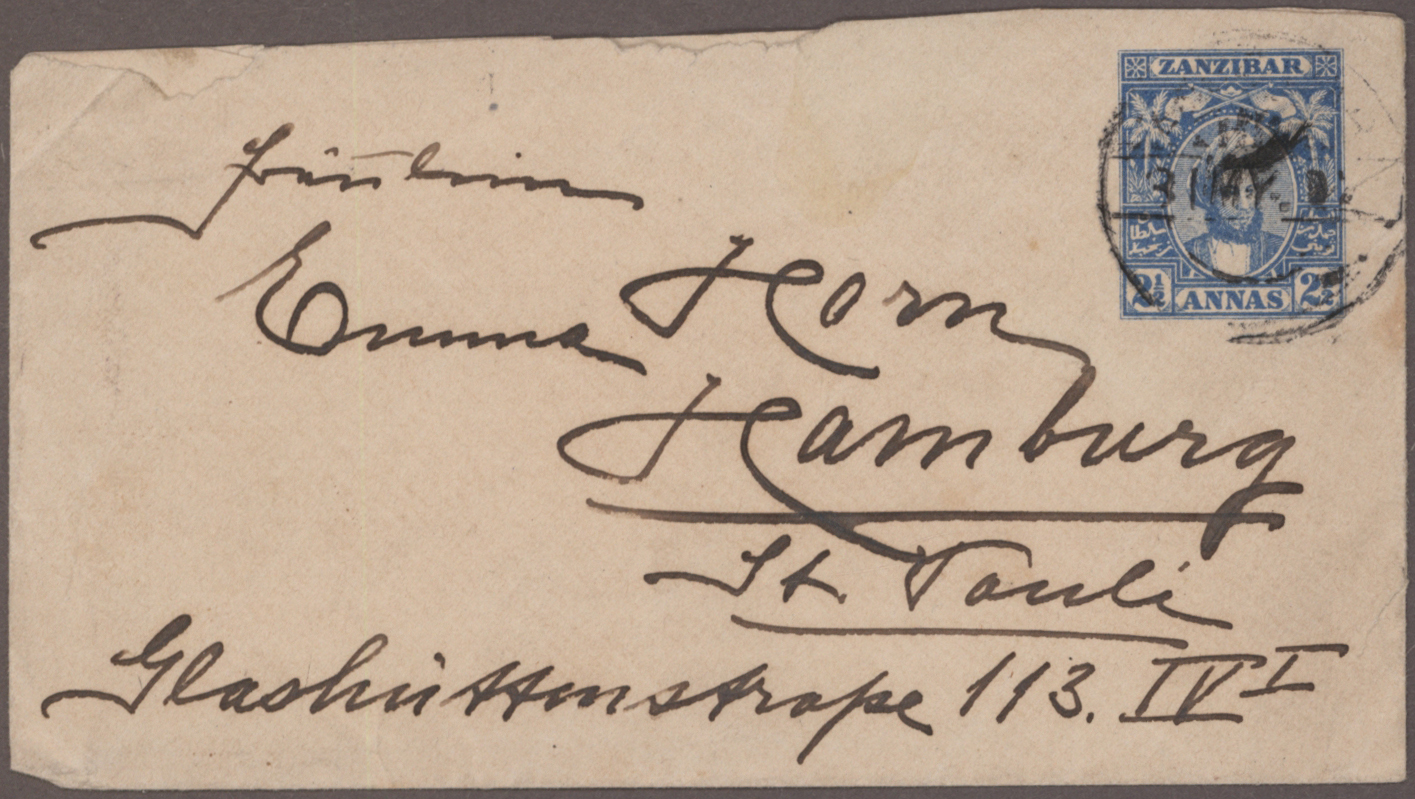 ZANZIBAR
2½ ANNAS 2½
Fräulein
Emma Horn
Hamburg
St. Pauli
Glashüttenstraße 113. IV I